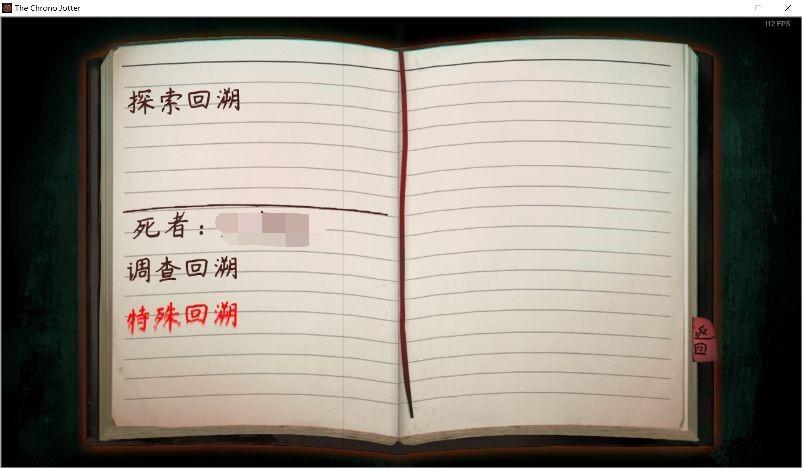 The Chrono Jotter
112 FPS
探索回溯
死者：
调查回溯
特殊回溯
返回